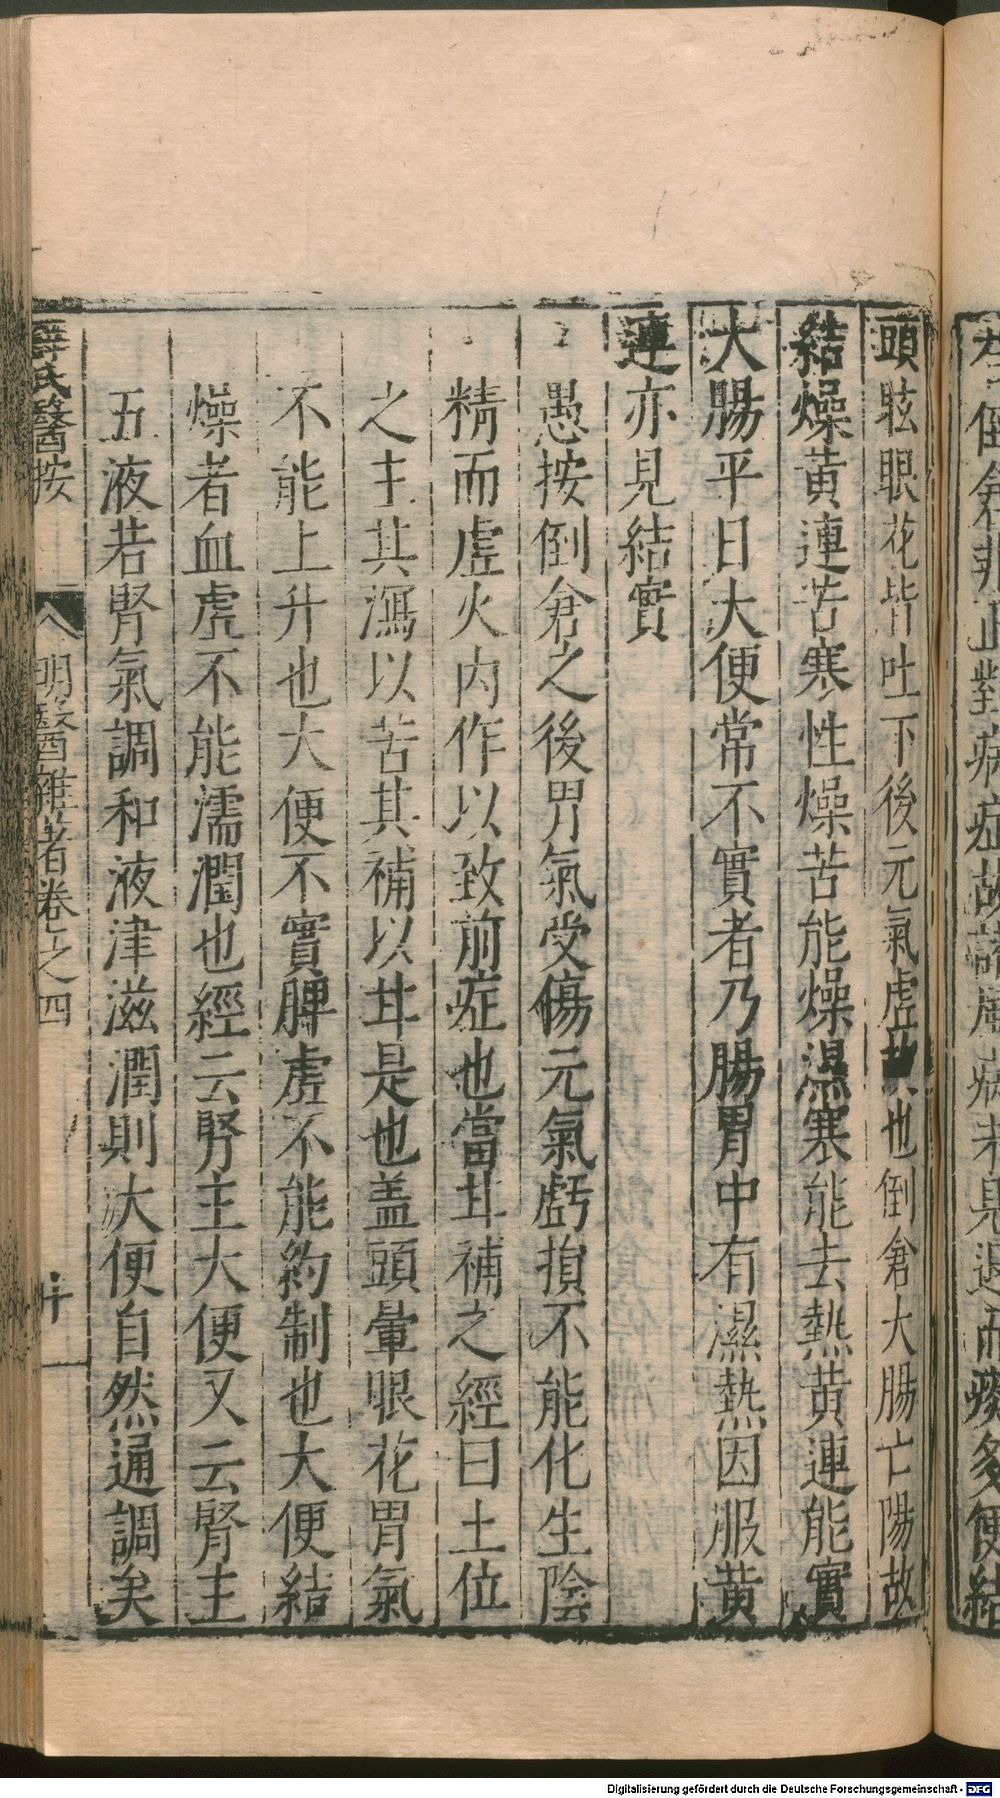 頭眩眼花皆吐下後元氣虛故也倒倉大腸亡陽故
結燥黃連苦寒性燥苦能燥濕寒能去熱黃連能實
大腸平日大便常不實者乃腸胃中有濕熱因服黃
連亦見結實
愚按倒倉之後胃氣受傷元氣虧損不能化生陰
精而虛火內作以致前症也當甘補之經曰土位
之主其瀉以苦其補以甘是也盖頭暈眼花胃氣
不能上升也大便不實脾虛不能約制也大便結
燥者血虛不能濡潤也經云腎主大便又云腎主
五液若腎氣調和液津滋潤則大便自然通調矣
薛氏醫按 明醫雜著卷之四
Digitalisierung gefördert durch die Deutsche Forschungsgemeinschaft - DFG